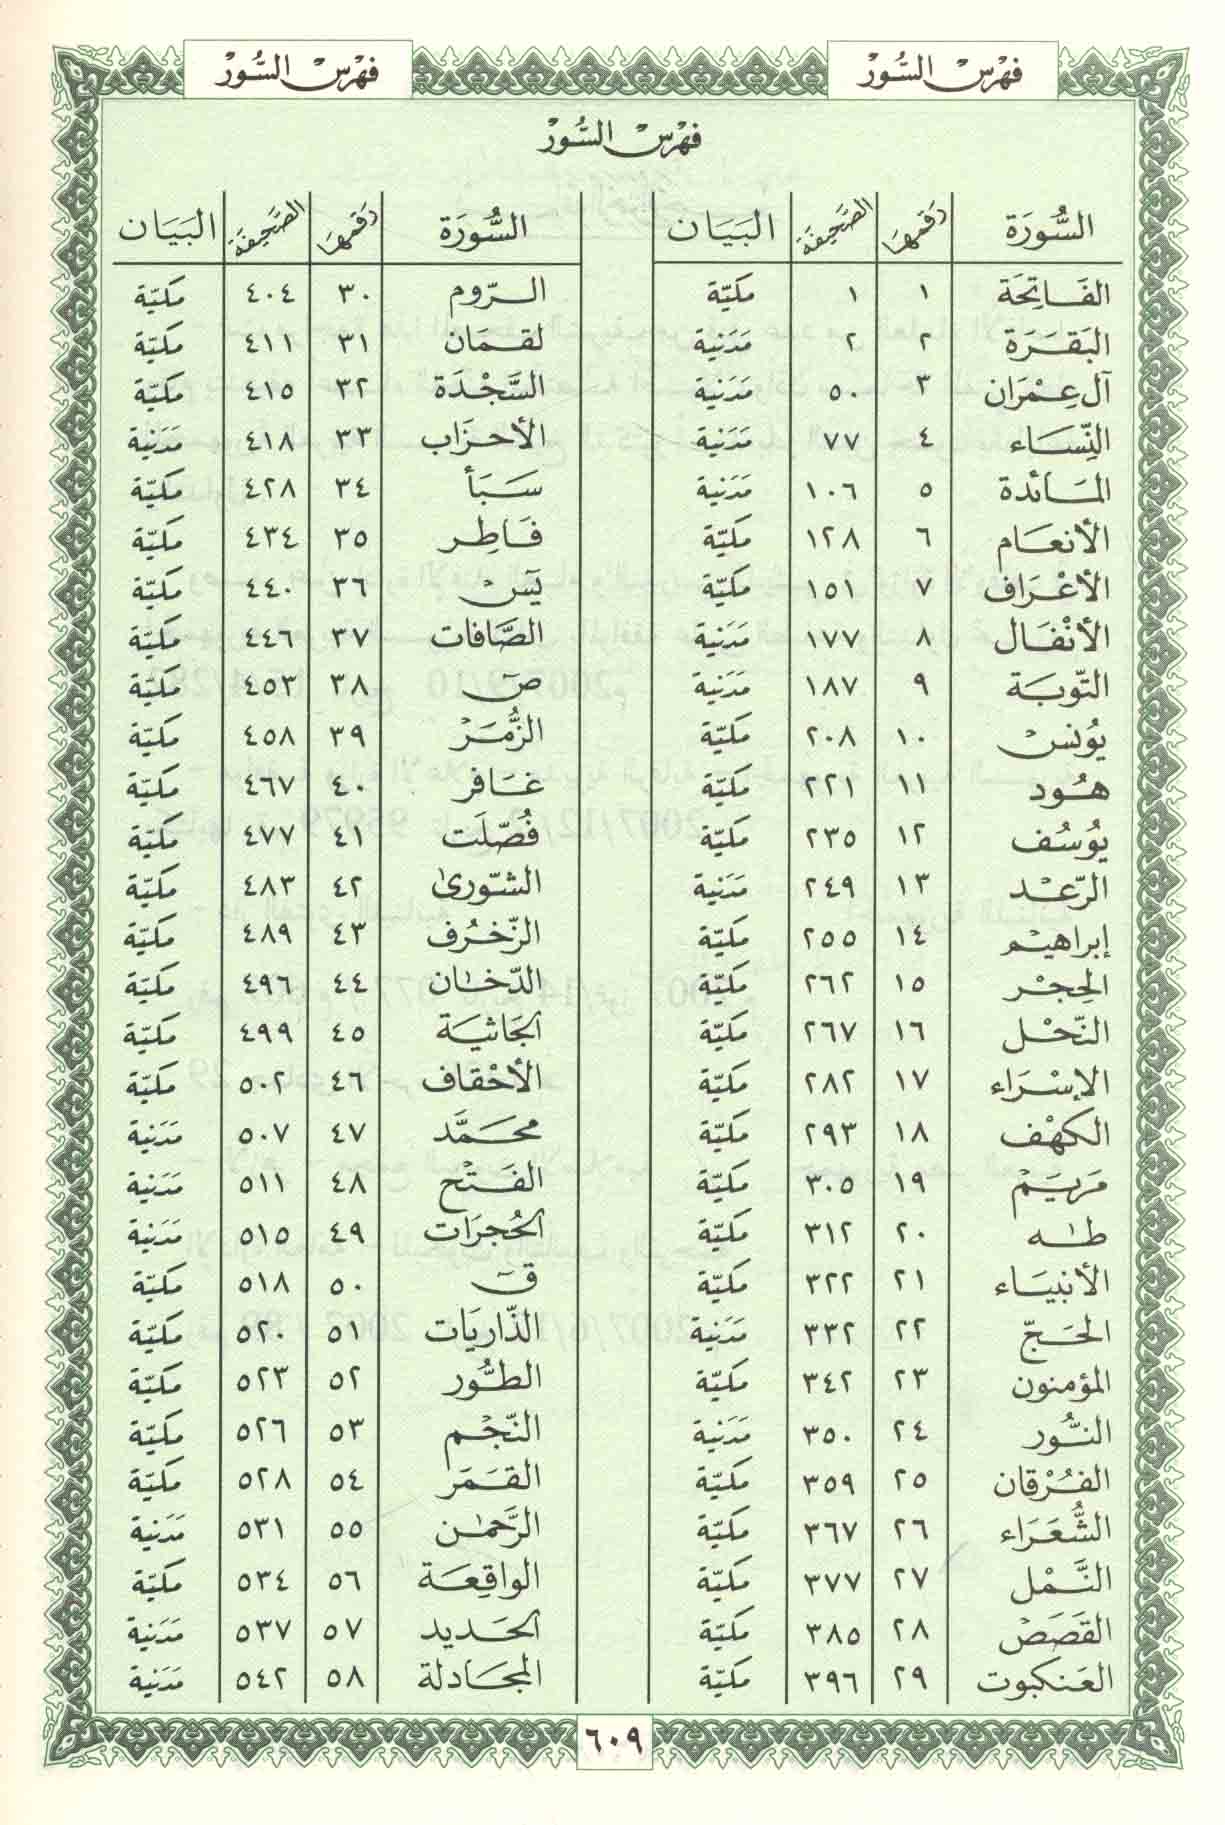 فهرس السور
فهرس السور
فهرس السُّور
السُّورَة رقمها الصَّحيفَة البَيَان
الفَاتِحَة ١ ١ مكيّة
البَقَرَة ٢ ٢ مَدَنية
آل عِمْرَان ٣ ٥٠ مَدَنية
النِّسَاء ٤ ٧٧ مَدَنية
المَائدة ٥ ١٠٦ مَدَنية
الأنعَام ٦ ١٢٨ مكيّة
الأعْرَاف ٧ ١٥١ مكيّة
الأنْفَال ٨ ١٧٧ مَدَنية
التّوبَة ٩ ١٨٧ مَدَنية
يُونس ١٠ ٢٠٨ مكيّة
هُود ١١ ٢٢١ مكيّة
يُوسُف ١٢ ٢٣٥ مكيّة
الرّعْد ١٣ ٢٤٩ مَدَنية
إبراهيم ١٤ ٢٥٥ مكيّة
الحِجْر ١٥ ٢٦٢ مكيّة
النّحْل ١٦ ٢٦٧ مكيّة
الإسْرَاء ١٧ ٢٨٢ مكيّة
الكهْف ١٨ ٢٩٣ مكيّة
مَريَم ١٩ ٣٠٥ مكيّة
طٰه ٢٠ ٣١٢ مكيّة
الأنبيَاء ٢١ ٣٢٢ مكيّة
الحَجّ ٢٢ ٣٣٢ مَدَنية
المؤمنون ٢٣ ٣٤٢ مكيّة
النُّور ٢٤ ٣٥٠ مَدَنية
الفُرْقان ٢٥ ٣٥٩ مكيّة
الشُّعَرَاء ٢٦ ٣٦٧ مكيّة
النَّمْل ٢٧ ٣٧٧ مكيّة
القَصَصْ ٢٨ ٣٨٥ مكيّة
العَنكبوت ٢٩ ٣٩٦ مكيّة
السُّورَة رقمها الصَّحيفَة البَيَان
الرّوم ٣٠ ٤٠٤ مكيّة
لقمَان ٣١ ٤١١ مكيّة
السَّجْدَة ٣٢ ٤١٥ مكيّة
الأحزَاب ٣٣ ٤١٨ مَدَنية
سَبَأ ٣٤ ٤٢٨ مكيّة
فَاطِر ٣٥ ٤٣٤ مكيّة
يٓسْ ٣٦ ٤٤٠ مكيّة
الصَّافات ٣٧ ٤٤٦ مكيّة
صٓ ٣٨ ٤٥٣ مكيّة
الزُّمَرْ ٣٩ ٤٥٨ مكيّة
غَافر ٤٠ ٤٦٧ مكيّة
فُصّلَت ٤١ ٤٧٧ مكيّة
الشّورىٰ ٤٢ ٤٨٣ مكيّة
الزّخرُف ٤٣ ٤٨٩ مكيّة
الدّخان ٤٤ ٤٩٦ مكيّة
الجَاثيَة ٤٥ ٤٩٩ مكيّة
الأحْقاف ٤٦ ٥٠٢ مكيّة
محمَّد ٤٧ ٥٠٧ مَدَنية
الفَتْح ٤٨ ٥١١ مَدَنية
الحُجرَات ٤٩ ٥١٥ مَدَنية
قٓ ٥٠ ٥١٨ مكيّة
الذّاريَات ٥١ ٥٢٠ مكيّة
الطُّور ٥٢ ٥٢٣ مكيّة
النّجْم ٥٣ ٥٢٦ مكيّة
القمَر ٥٤ ٥٢٨ مكيّة
الرَّحمٰن ٥٥ ٥٣١ مَدَنية
الواقِعَة ٥٦ ٥٣٤ مكيّة
الحَديد ٥٧ ٥٣٧ مَدَنية
المجَادلة ٥٨ ٥٤٢ مَدَنية
٦٠٩